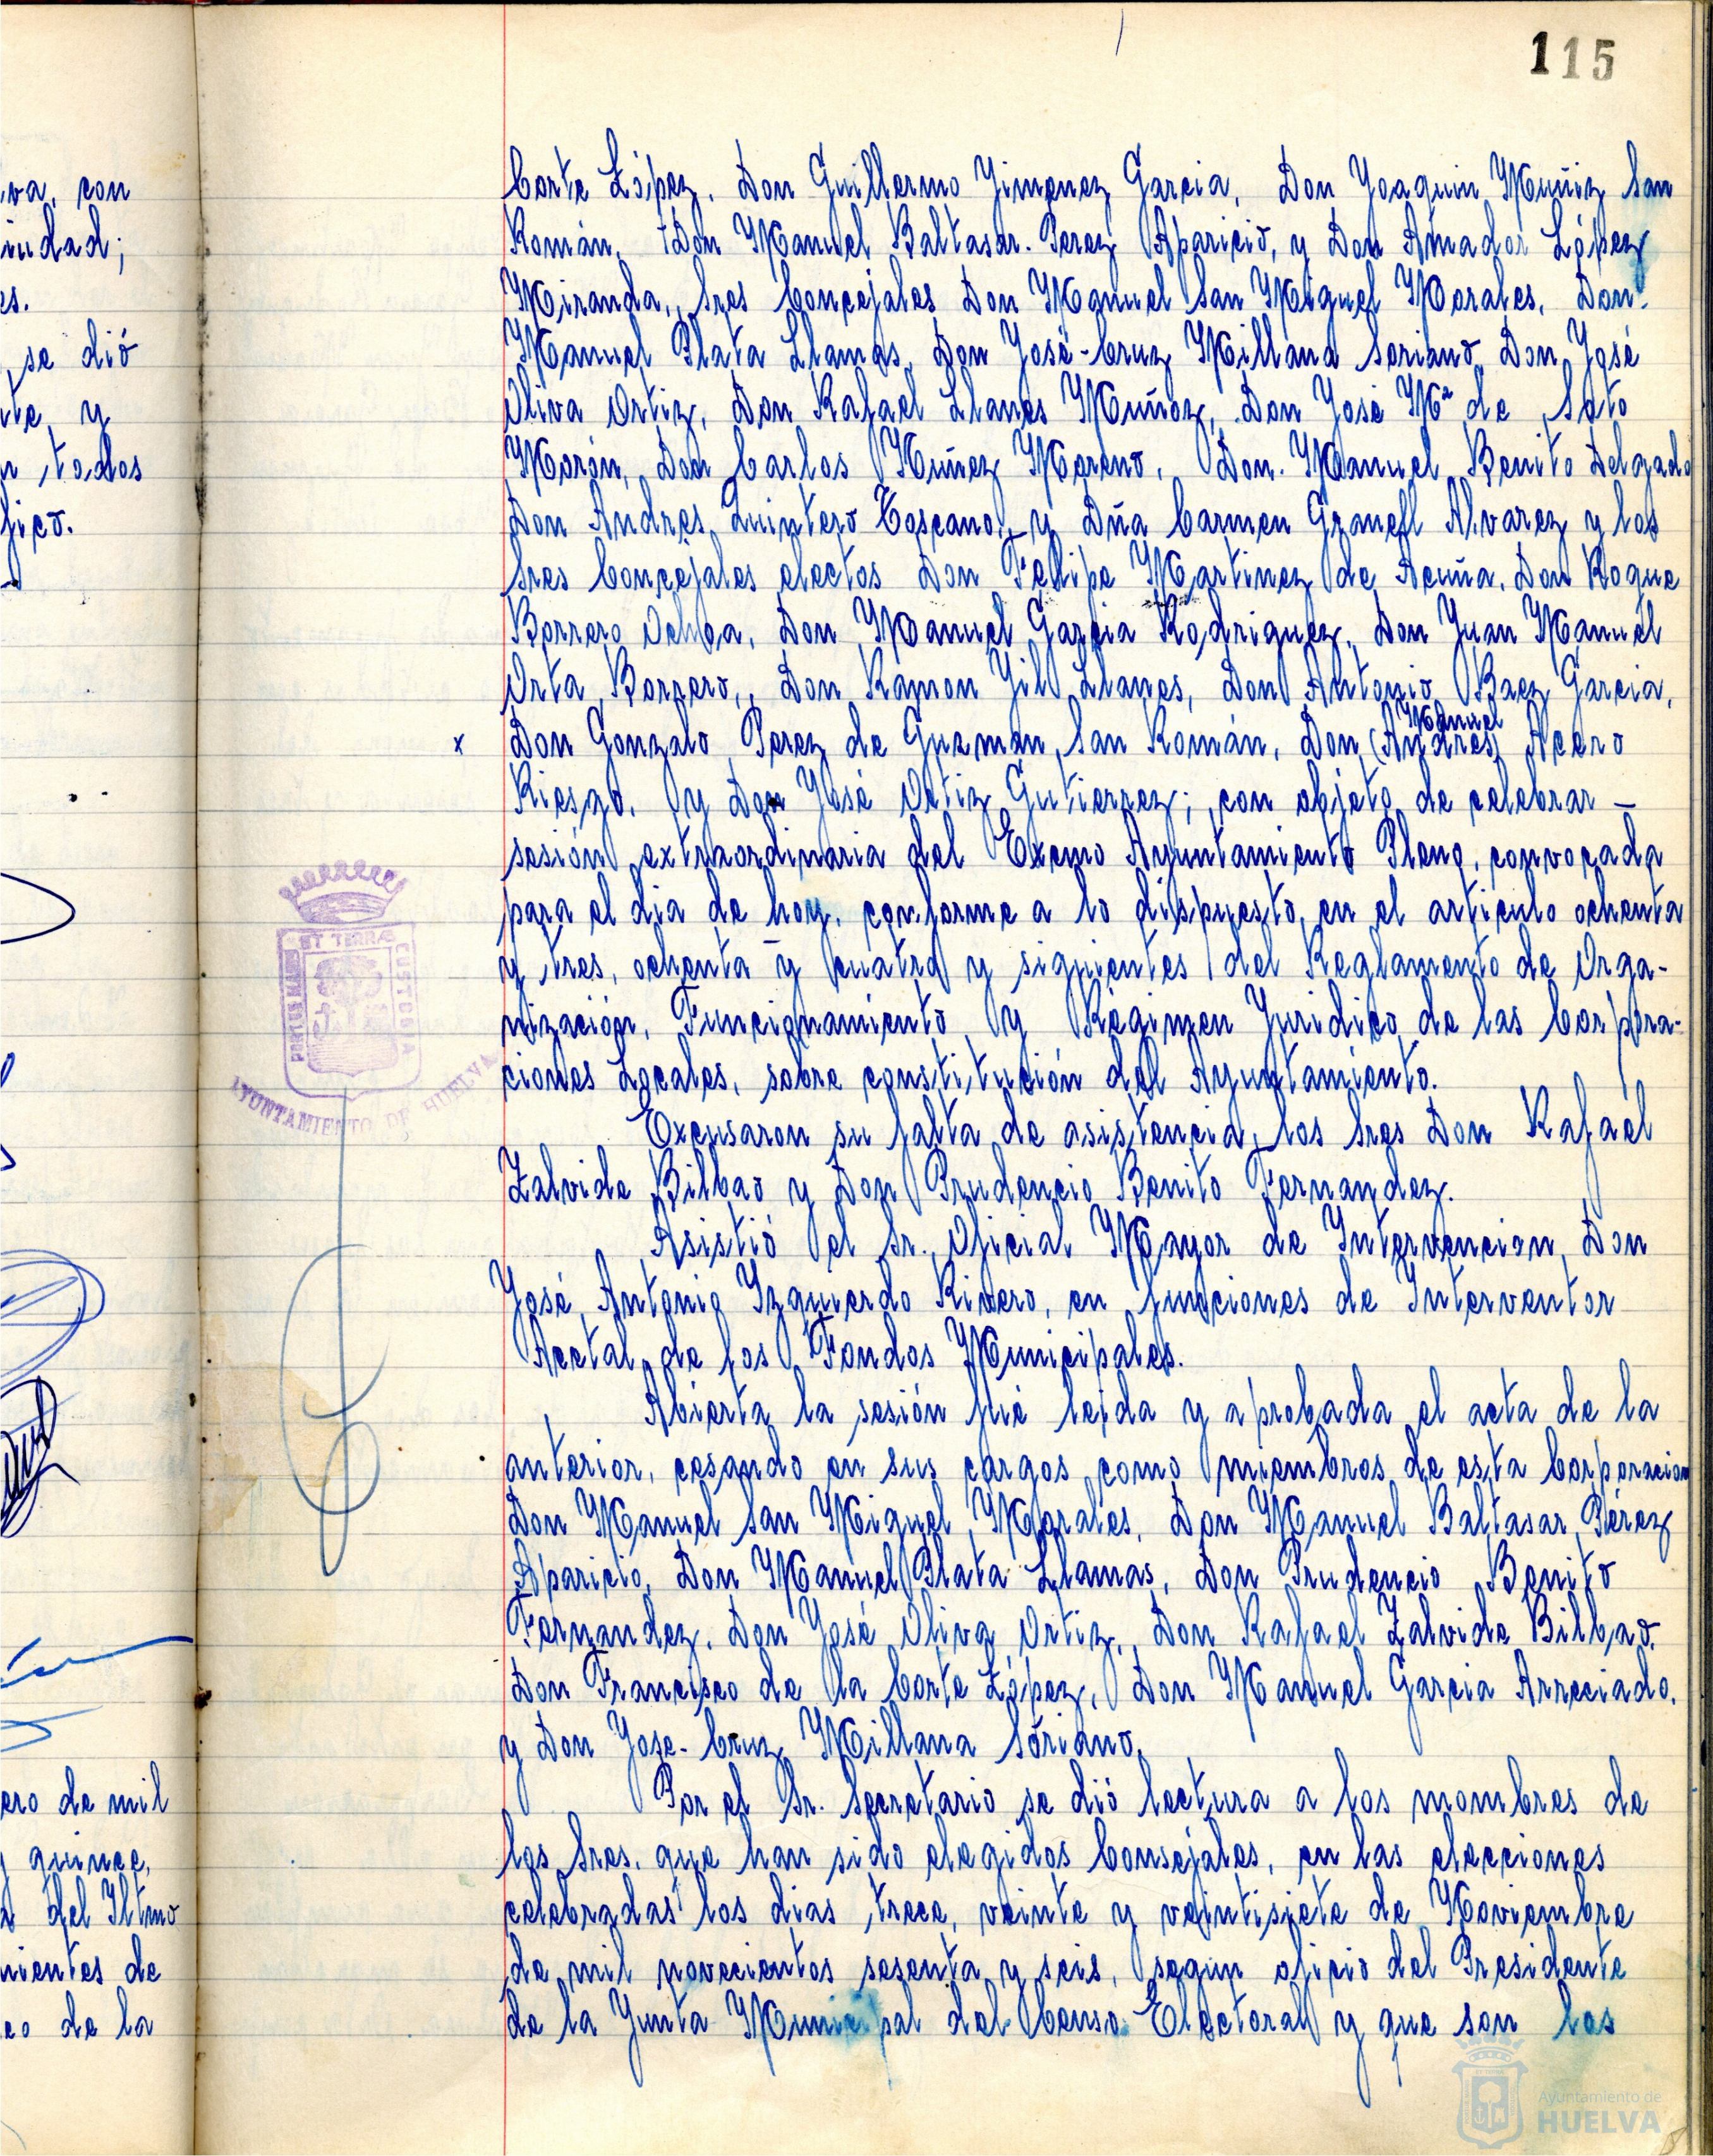 115
va, con
iudad;
es.
se dió
nte, y
n todos
fico.
ero de mil
y quince,
del Iltmo
nientes de
eo de la
Corte López, Don Guillermo Jimenez Garcia, Don Joaquin Muñiz San
Román, Don Manuel Baltasar Perez Aparicio, y Don Amador López
Miranda, Sres Concejales Don Manuel San Miguel Morales, Don
Manuel Plata Llamas, Don José-Cruz Millana Soriano, Don José
Oliva Ortiz, Don Rafael Llanes Muñoz, Don José Mª de Soto
Morón, Don Carlos Nuñez Moreno, Don Manuel Benito Delgado
Don Andres Quintero Toscano, y Dña Carmen Granell Alvarez y los
Sres Concejales electos Don Felipe Martinez de Acuña, Don Roque
Borrero Ochoa, Don Manuel Garcia Rodriguez, Don Juan Manuel
Orta Borrero, Don Ramon Gil Llanes, Don Antonio Baez Garcia,
Manuel
x Don Gonzalo Perez de Guzman San Román, Don (Andres) Acero
Riesgo, y Don José Ortiz Gutierrez; con objeto de celebrar —
sesión extraordinaria del Excmo Ayuntamiento Pleno, convocada
para el dia de hoy, conforme a lo dispuesto en el articulo ochenta
y tres, ochenta y cuatro y siguientes del Reglamento de Orga-
nización, Funcionamiento y Régimen Juridico de las Corpora-
ciones Locales, sobre constitución del Ayuntamiento.
Excusaron su falta de asistencia, los Sres Don Rafael
Zalvide Bilbao y Don Prudencio Benito Fernandez.
Asistió el Sr. Oficial Mayor de Intervencion, Don
José Antonio Izquierdo Rivero, en funciones de Interventor
Acctal de los Fondos Municipales.
Abierta la sesión fué leida y aprobada el acta de la
anterior, cesando en sus cargos como miembros de esta Corporacion
Don Manuel San Miguel Morales, Don Manuel Baltasar Pérez
Aparicio, Don Manuel Plata Llamas, Don Prudencio Benito
Fernandez, Don José Oliva Ortiz, Don Rafael Zalvide Bilbao,
Don Francisco de la Corte López, Don Manuel Garcia Arreciado,
y Don Jose-Cruz Millana Soriano.
Por el Sr. Secretario se dió lectura a los nombres de
los Sres. que han sido elegidos Consejales, en las elecciones
celebradas los dias trece, veinte y veintisiete de Noviembre
de mil novecientos sesenta y seis, segun oficio del Presidente
de la Junta Municipal del Censo Electoral y que son los
PORTUS MARIS ET TERRAE CUSTODIA
AYUNTAMIENTO DE HUELVA
Ayuntamiento de
HUELVA